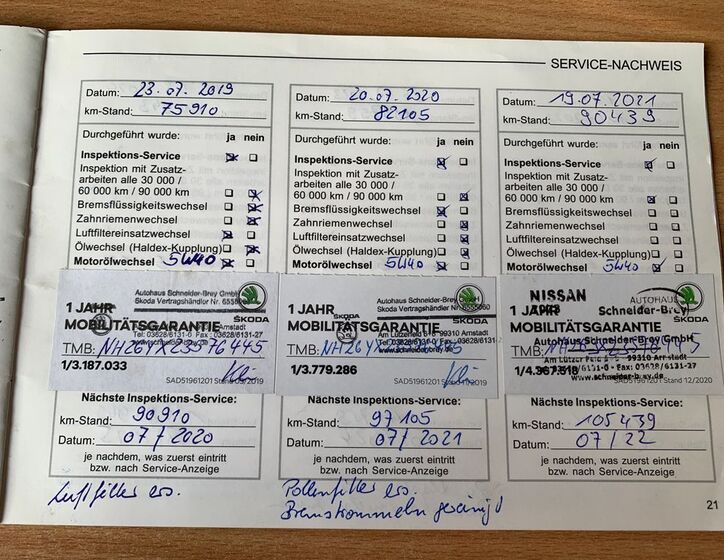 SERVICE-NACHWEIS
Datum: 23.07.2019
km-Stand: 75910
Durchgeführt wurde: ja nein
Inspektions-Service
Inspektion mit Zusatz-
arbeiten alle 30 000 /
60 000 km / 90 000 km
Bremsflüssigkeitswechsel
Zahnriemenwechsel
Luftfiltereinsatzwechsel
Ölwechsel (Haldex-Kupplung)
Motorölwechsel 5W40
1 JAHR
MOBILITÄTSGARANTIE
Autohaus Schneider-Brey GmbH
Skoda Vertragshändler
ŠKODA
TMB:
1/3.187.033
Nächste Inspektions-Service:
km-Stand: 90910
Datum: 07/2020
je nachdem, was zuerst eintritt
bzw. nach Service-Anzeige
Luftfilter ers.
Datum: 20.07.2020
km-Stand: 82105
Durchgeführt wurde: ja nein
Inspektions-Service
Inspektion mit Zusatz-
arbeiten alle 30 000 /
60 000 km / 90 000 km
Bremsflüssigkeitswechsel
Zahnriemenwechsel
Luftfiltereinsatzwechsel
Ölwechsel (Haldex-Kupplung)
Motorölwechsel 5W40
1 JAHR
MOBILITÄTSGARANTIE
Autohaus Schneider-Brey
Skoda Vertragshändler
ŠKODA
Am Lützerfeld 6-8 99310 Arnstadt
TMB:
1/3.779.286
Nächste Inspektions-Service:
km-Stand: 97105
Datum: 07/2021
je nachdem, was zuerst eintritt
bzw. nach Service-Anzeige
Pollenfilter ers.
Bremstrommeln gereinigt
Datum: 19.07.2021
km-Stand: 90439
Durchgeführt wurde: ja nein
Inspektions-Service
Inspektion mit Zusatz-
arbeiten alle 30 000 /
60 000 km / 90 000 km
Bremsflüssigkeitswechsel
Zahnriemenwechsel
Luftfiltereinsatzwechsel
Ölwechsel (Haldex-Kupplung)
Motorölwechsel 5W40
NISSAN AUTOHAUS
1 JAHR Schneider-Brey
ŠKODA
MOBILITÄTSGARANTIE
Autohaus Schneider-Brey GmbH
TMB:
SAD51961201 Stand 12/2020
Nächste Inspektions-Service:
km-Stand: 105439
Datum: 07/22
je nachdem, was zuerst eintritt
bzw. nach Service-Anzeige
21